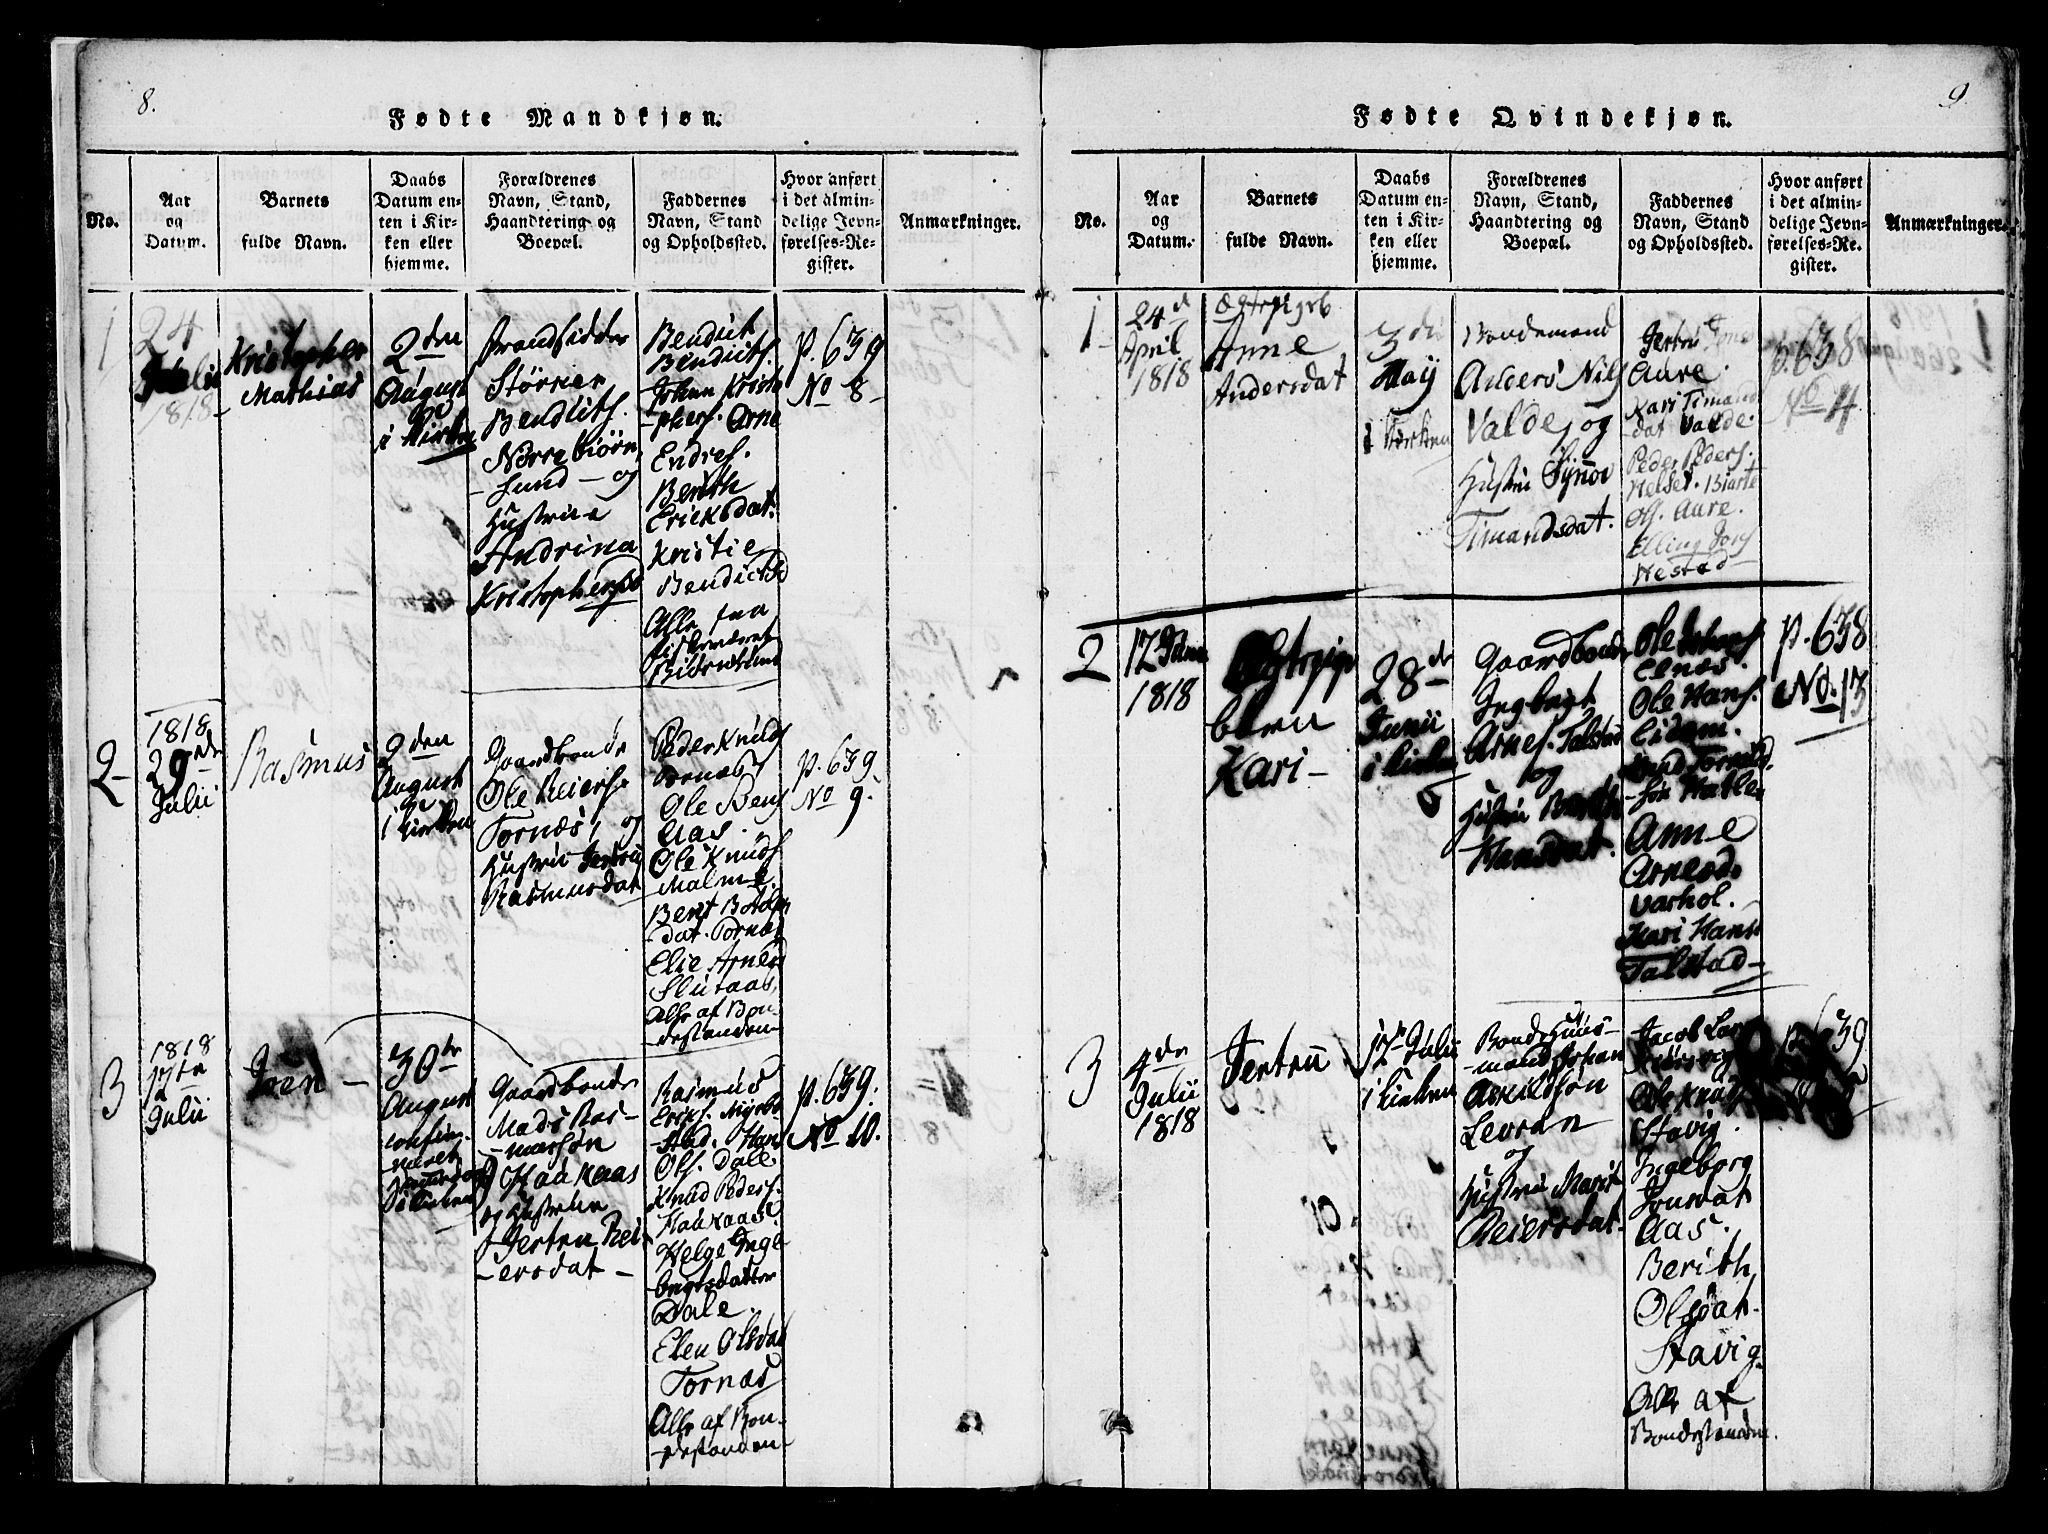 8.
Fødte Mandkjøn.
No.
Aar
og
Datum.
Barnets
fulde Navn.
Daabs
Datum en-
ten i Kir-
ken eller
hjemme.
Forældrenes
Navn, Stand,
Haandtering og
Boepæl.
Faddernes
Navn, Stand
og Opholdssted.
Hvor anført
i det almin-
delige Jevn-
førelses-Re-
gister.
Anmærkninger.
1
24
Julii
1818
Kristopher
Mathias
2den
August
i Kirken
Strandsidder
Størker
Bendicts.
Nørre Biørn
-sund- og
Hustrue
Andrina
Kristophersd
Bendict
Bendicts.
Johan Kristo
-phers. Arne
Endres.
Berith
Ericksdat.
Kristie
Bendictsd
Alle fra
Biørnsund
p. 639
No 8-
2-
1818
29de
Julii
Rasmus
2den
August
i Kirken
Gaardbonde
Ole Reiers.
Tornæs, og
Hustrue Jertru
Rasmusdat
Peder Knuds
Tornæs
Ole Bens
Aas.
Ole Knuds
Malme.
Berit
-dat. Tornæs
Elie Arnes
Slutaas,
Alle af Bon
destanden
p. 639.
No 9.
3
1818
Julii
Iven -
30te
August
confir-
meret
Gaardbonde
Mads Ras-
-mussøn
Haakaas
og Hustrue
Jertru Rei-
-ersdat-
Rasmus
Ericks. Myrbo
-stad. Hans
Ols. Dale.
Knud Peders.
Haakaas
Helge Inge
brigtsdatter
Dale.
Elen Olsdat
Tornæs
Alle af Bon-
-destanden
p. 639.
No 10.
9.
Fødte Qvindekjøn.
No.
Aar
og
Datum.
Barnets
fulde Navn.
Daabs
Datum en-
ten i Kir-
ken eller
hjemme.
Forældrenes
Navn, Stand,
Haandtering og
Boepæl.
Faddernes
Navn, Stand
og Opholdssted.
Hvor anført
i det almin-
delige Jevn-
førelses-Re-
gister.
Anmærkninger.
1
24d
April
1818
Anne
Andersdat
3die
Maij
i Kirken
Bondemand
Anders Nils
Valde, og
Hustru Synov
Timandsdat.
Jertru
Aure.
Kari Timand
-dat Valde.
Peder Peders.
Helset. Biarte
Ols. Aure.
Elling Jons
Nestad-
p. 638
No 4
2
17 Juni
1818
Ægtepige
barn
Kari-
28de
Junii
i Kirken
Gaardbonde
Ingbrigt
Arnes. Talstad
og
Hustru Berith
Hansdat.
Ole
Elnæs.
Ole Hans.
Eidem.
søn Hatle
Anne
Arnesd.
Varhol.
Kari Hans
Talstad-
p. 638
No. 13
3
4de
Julii
1818
Jertru
12 Julii
i Kirken
Bonde Huus-
-mand Johan
Askildsøn
Levran
og
Hustru Marit
Reiersdat.
Jacob Lars
Ole Knuds
Stavig.
Ingeborg
Jonsdat
Aas.
Berith
Olsdat.
Stavig
Alle af
Bondestanden.
p. 639